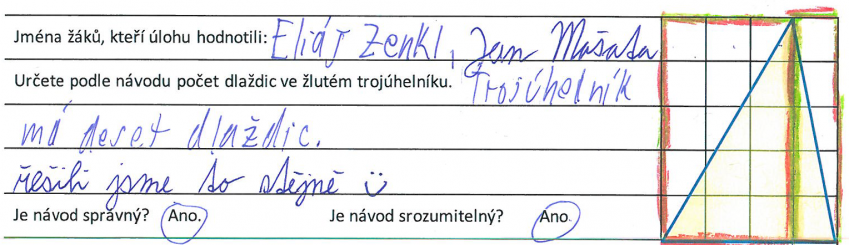 Jména žáků, kteří úlohu hodnotili: Eliáš Zenkl, Jan Mašata
Určete podle návodu počet dlaždic ve žlutém trojúhelníku. Trojúhelník
má deset dlaždic.
řešili jsme to stějně
Je návod správný? Ano. Je návod srozumitelný? Ano.